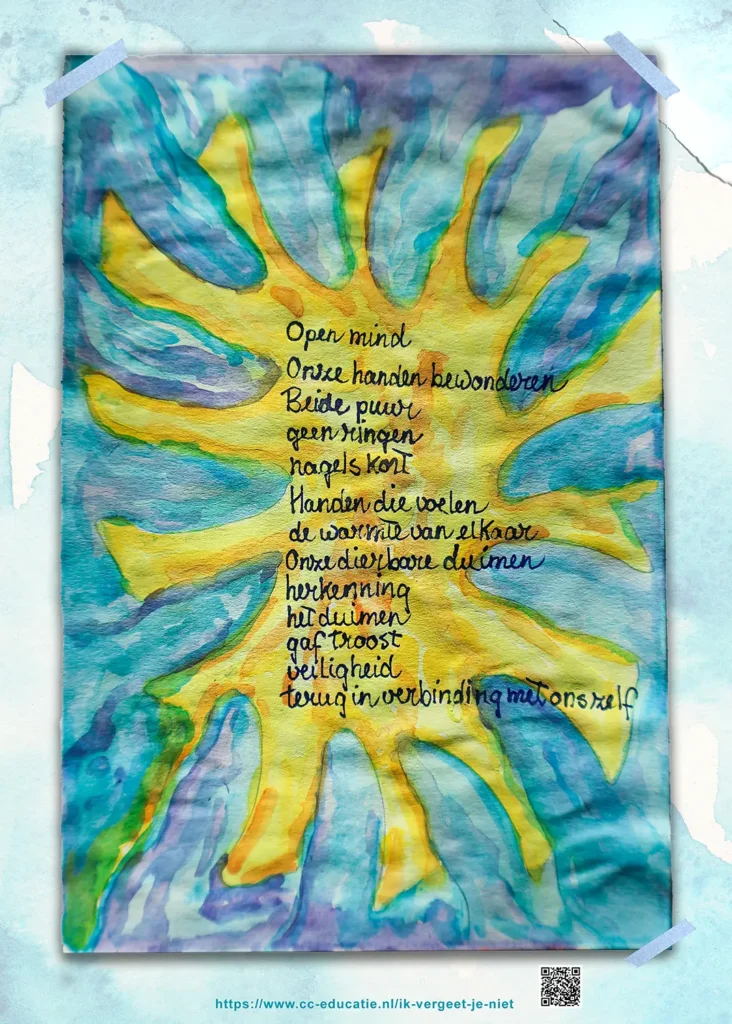 Open mind
Onze handen bewonderen
Beide puur
geen ringen
nagels kort
Handen die voelen
de warmte van elkaar
Onze dierbare duimen
herkenning
het duimen
gaf troost
veiligheid
terug in verbinding met ons zelf
https://www.cc-educatie.nl/ik-vergeet-je-niet